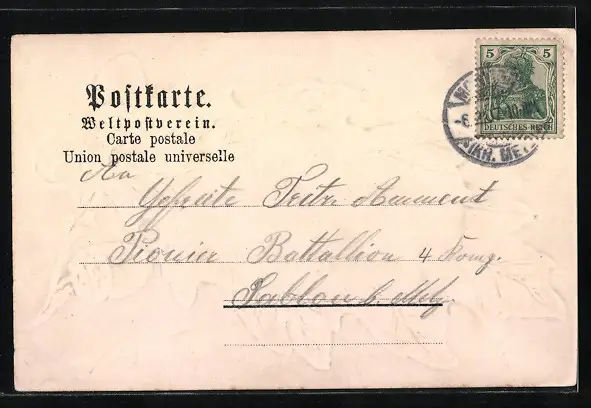 Postkarte.
Weltpostverein.
Carte postale
Union postale universelle
5 5
DEUTSCHES REICH
An
Gefreite Fritz Ammment
Pionier Battallion 4 Komg.
Sablon b. Metz